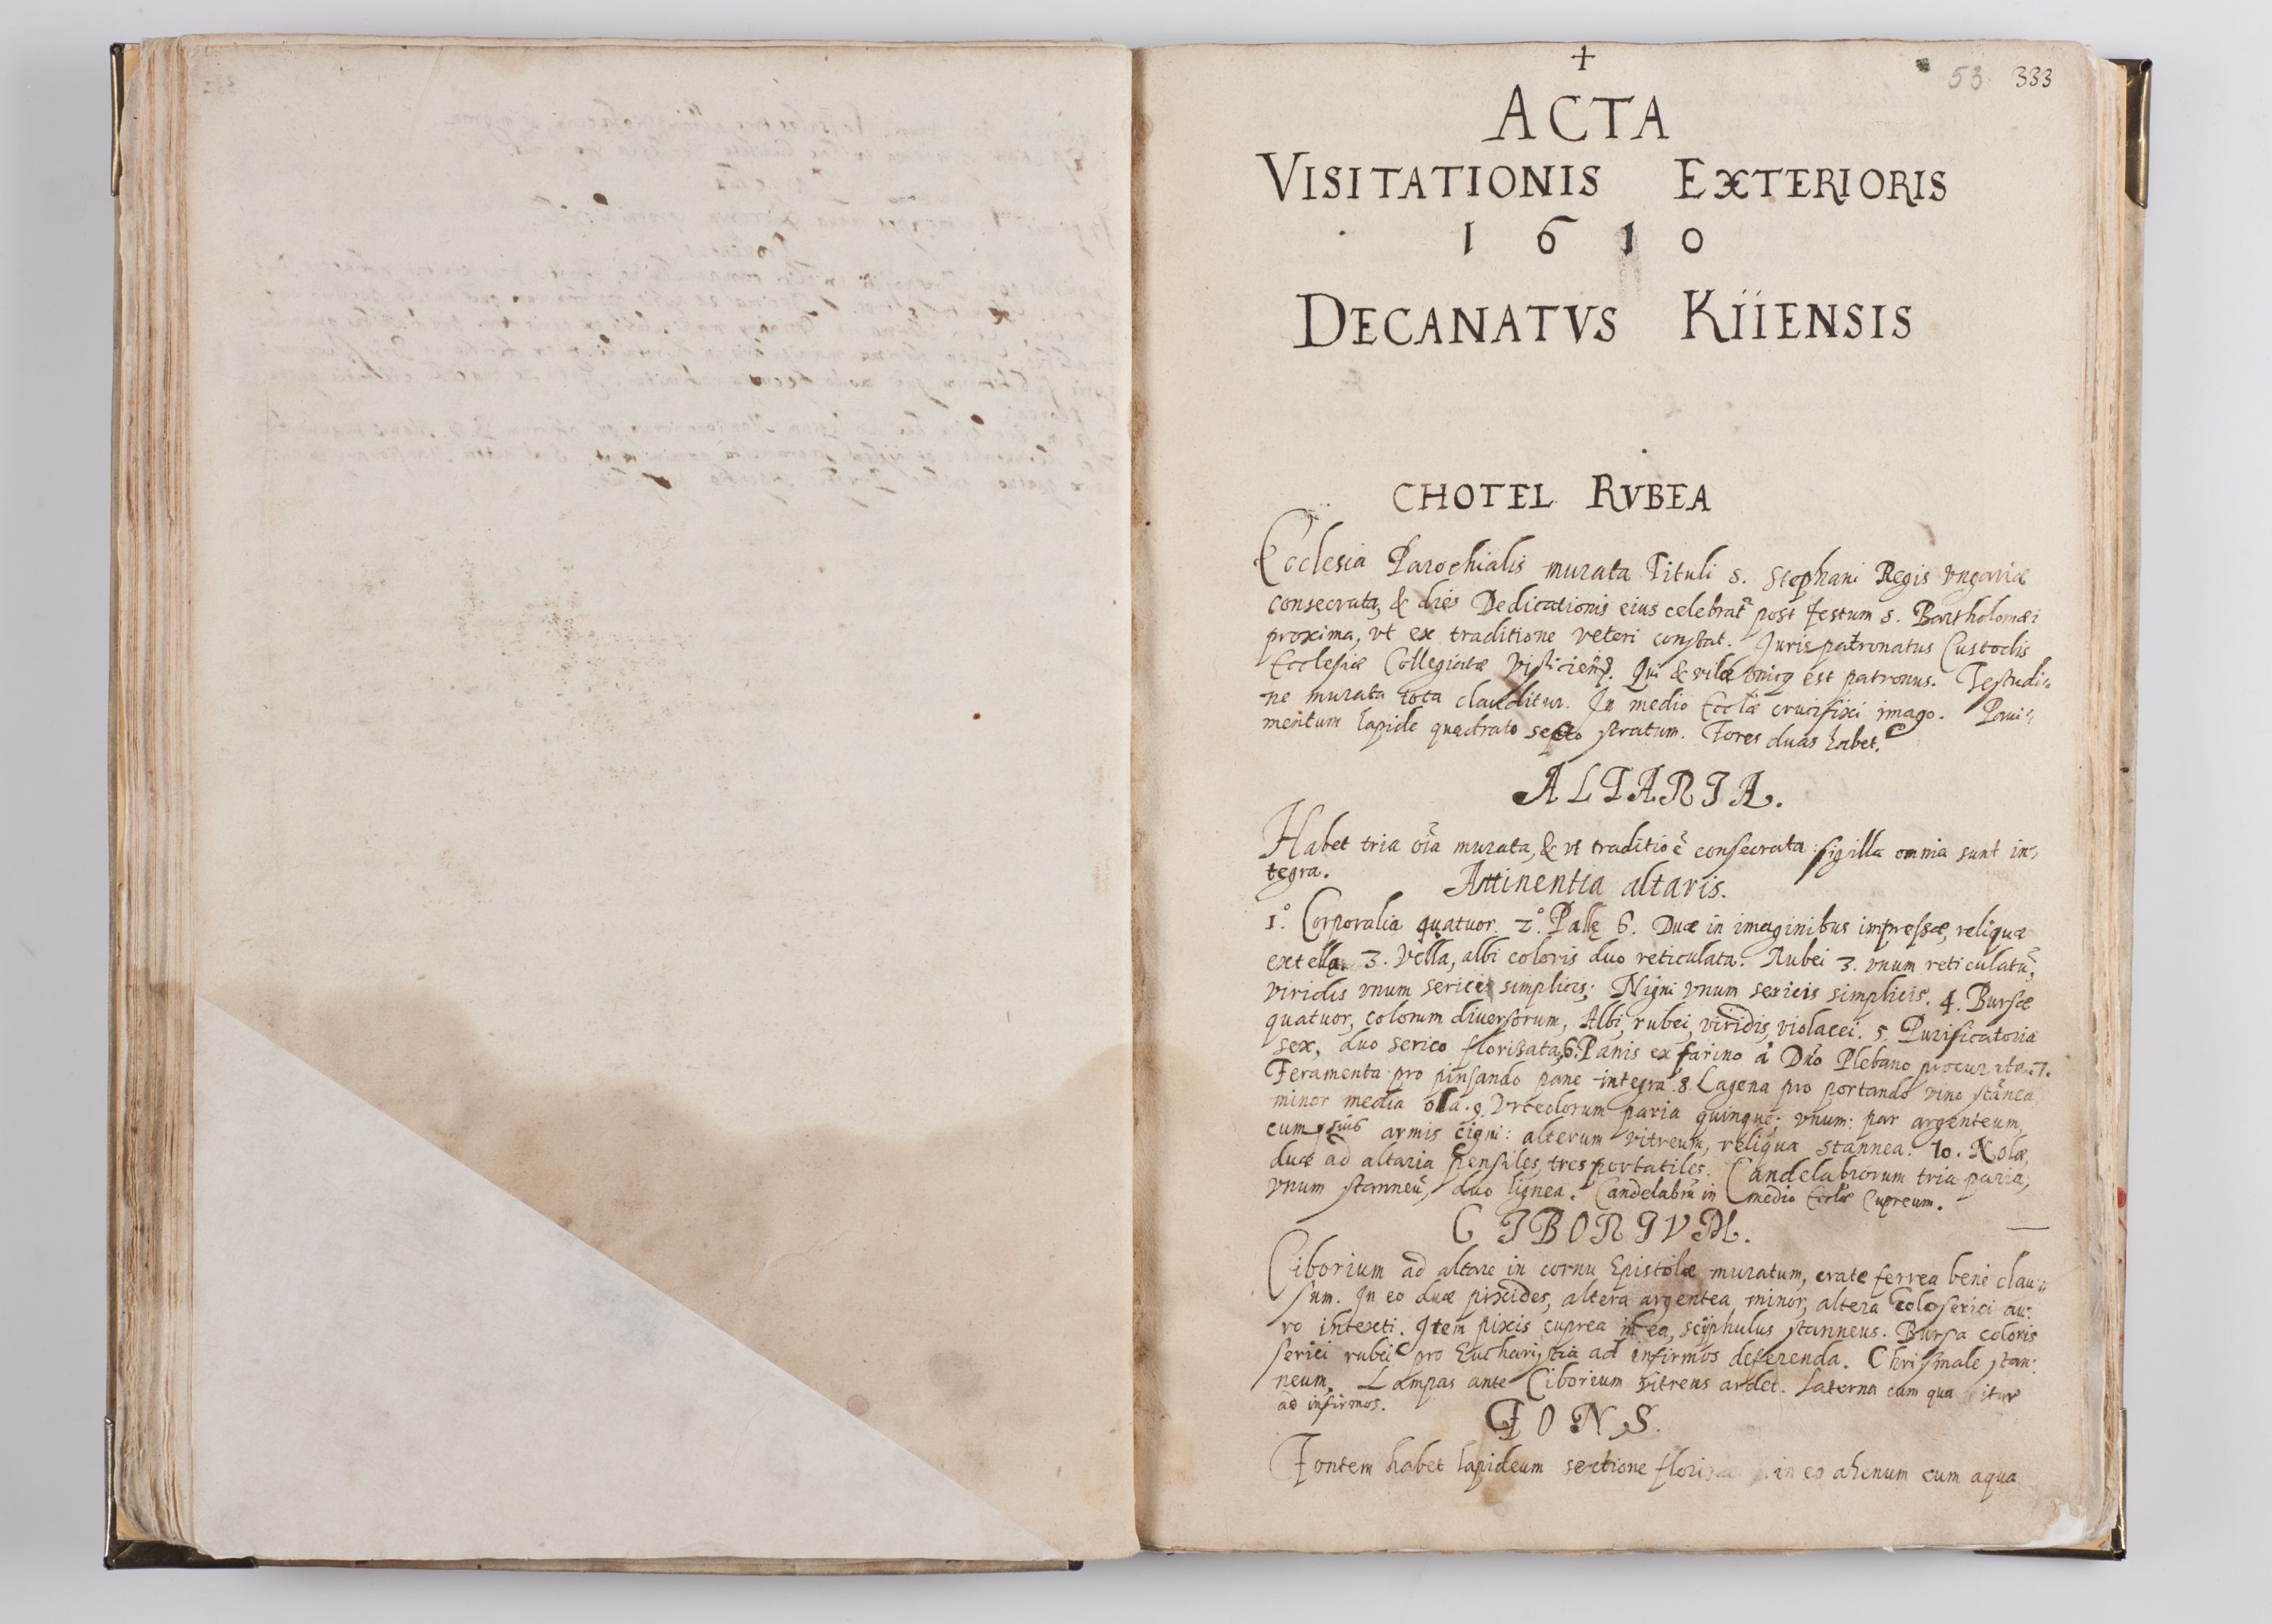 +
53 333
ACTA
VISITATIONIS EXTERIORIS
1610
DECANATVS KÏÏENSIS
CHOTEL RVBEA
Ecclesia Parochialis murata Tituli S. Stephani Regis Vngariæ
consecrata, & dies Dedicationis eius celebrat̃ post festum S. Bartholomæi
proxima, vt ex traditione veteri constat. Juris patronatus Custodis
Ecclesiæ Collegiatæ Qui & est patronus. Testudi⸗
ne murata tota clauditur. In medio Eccłæ crucifixi imago. Paui⸗
mentum lapide quadrato secto stratum. Fores duas habet.
ALTARIA.
Habet tria oĩa murata, & vt traditio ẽ consecrata: sigilla omnia sunt in⸗
tegra.
Attinentia altaris.
1.° Corporalia quatuor. 2.° Pallę 6. Duæ in imaginibus impressæ, reliquæ
ex tella. 3. Vella, albi coloris duo reticulata. Rubei 3. vnum reticulatũ,
viridis vnum sericei simplicis; Nigri vnum sericis simplicis. 4. Bursæ
quatuor, colorum diuersorum, Albi, rubei, viridis, violacei. 5. Purificatoria
sex, duo serico florisata, 6. Panis ex farino â Dño Plebano procurata. 7.
Feramenta pro pinsando pane integra. 8. Lagena pro portando vino stãnea
minor media olla. 9. Vrceolorum paria quinque; vnum: par argenteum,
cum suis armis Cigni: alterum vitreum, reliqua stannea. 10. Nolæ,
duæ ad altaria pensiles, tres portatiles. Candelabrorum tria paria,
vnum stanneũ, duo lignea. Candelabrũ in medio Eccłæ Cupreum.
CIBORIVM.
Ciborium ad altare in cornu Epistolæ muratum, crate ferrea bene clau⸗
sum. In eo duæ pixides, altera argentea minor, altera holoserici au⸗
ro intexti. Item pixis cuprea in ea, sciphulus stanneus. Bursa coloris
serici rubei pro Eucharistia ad infirmos deferenda. Chrismale stan⸗
neum. Lampas ante Ciborium vitreus ardet. Laterna cum qua itur
ad infirmos.
FONS.
Fontem habet lapideum sectione in eo ahenum cum aqua